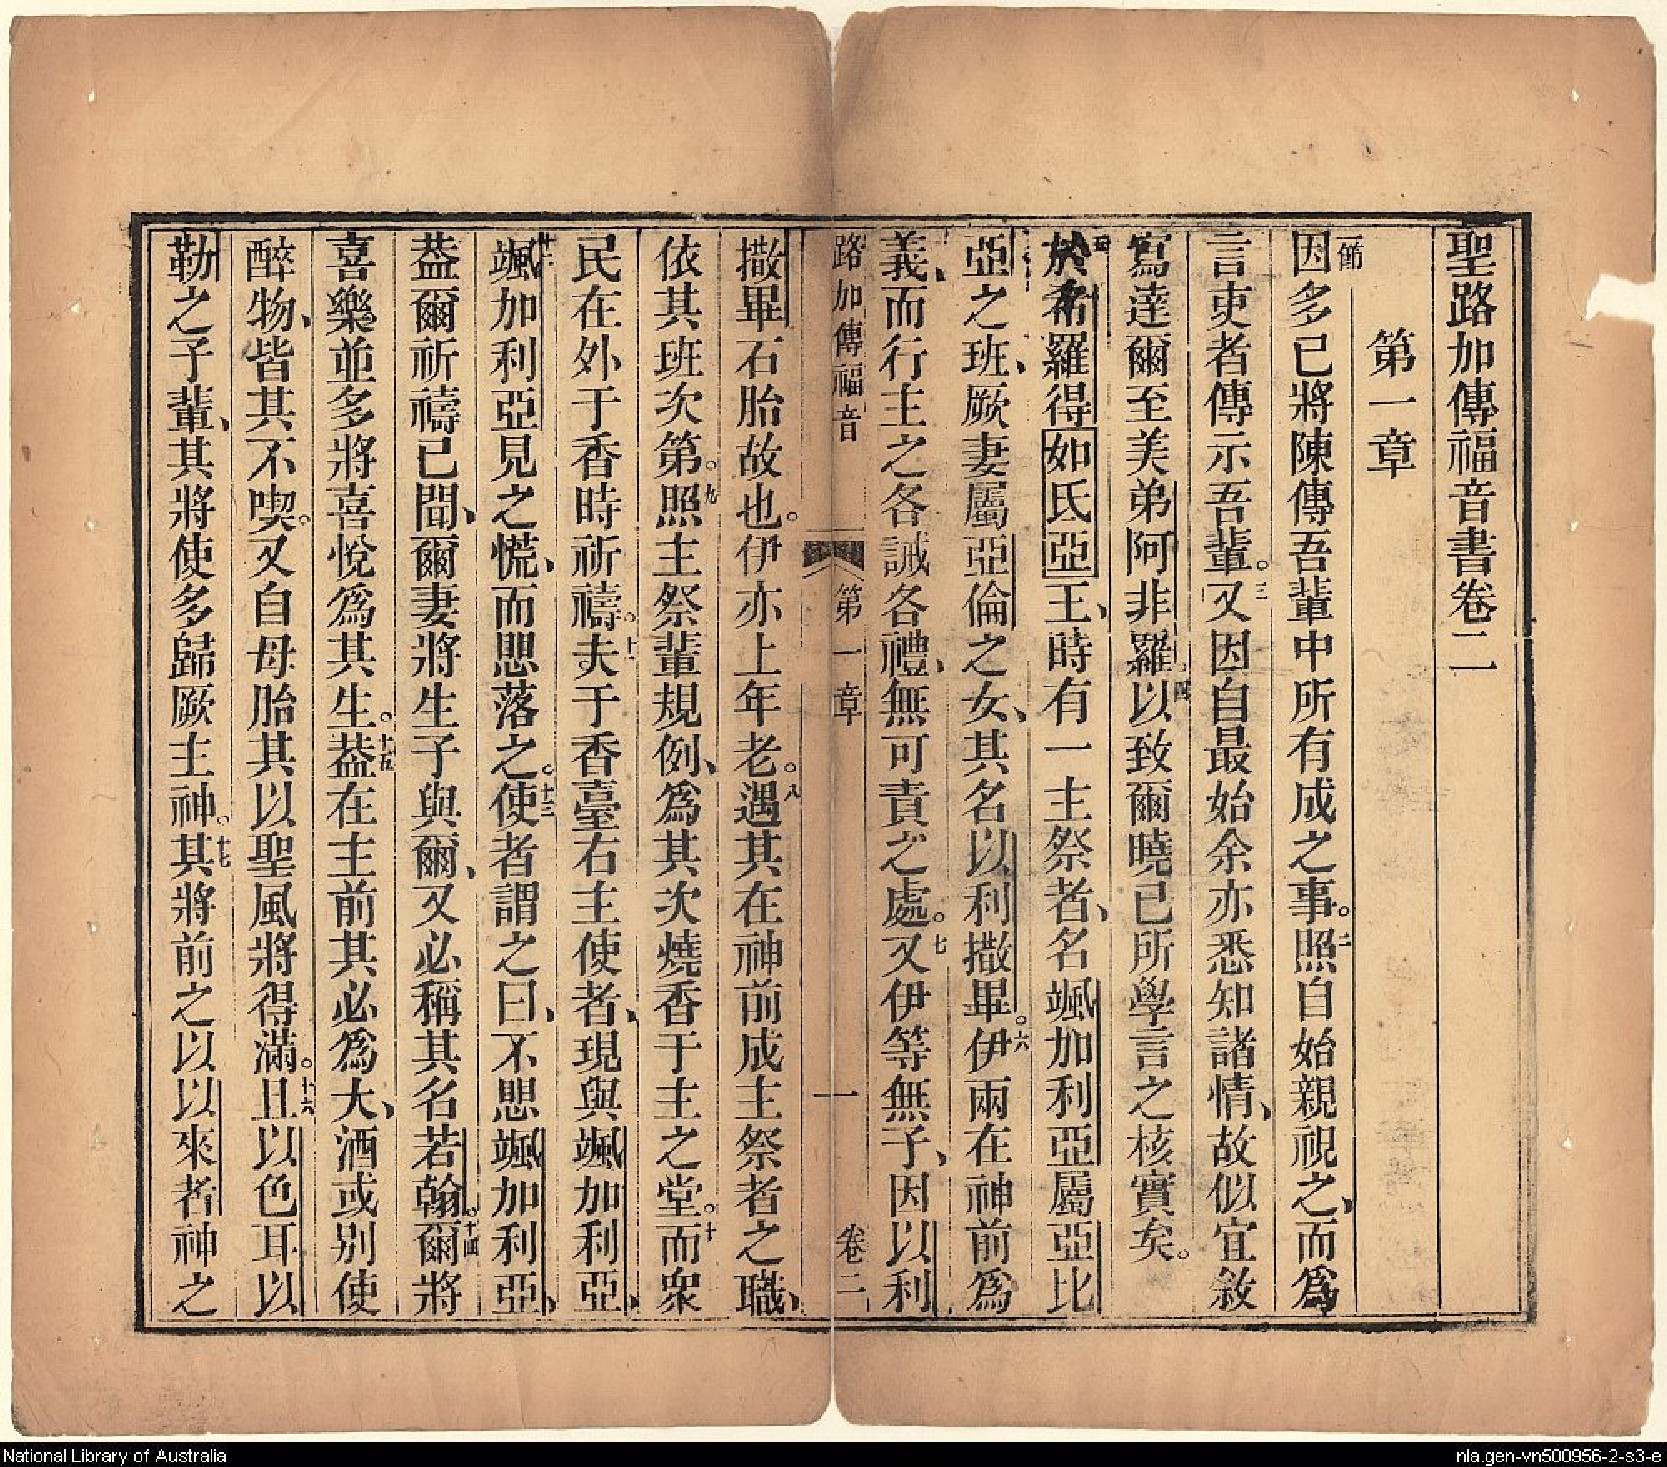 聖路加傳福音書卷二
第一章
一節因多已將陳傳吾輩中所有成之事。二照自始親視之、而爲
言吏者傳示吾輩。三又因自最始余亦悉知諸情、故似宜敘
寫達爾至美弟阿非羅、四以致爾曉已所學言之核實矣。
於希羅得如氐亞王、時有一主祭者、名颯加利亞屬亞比
亞之班、厥妻屬亞倫之女、其名以利撒畢。六伊兩在神前爲
義、而行主之各誡各禮、無可責之處。七又伊等無子、因以利
路加傳福音 第一章 一 卷二
撒畢石胎故也。伊亦上年老。八遇其在神前成主祭者之職、
依其班次第。九照主祭輩規例、爲其次燒香于主之堂。十而衆
民在外于香時祈禱。十一夫于香臺右主使者、現與颯加利亞、
十二颯加利亞見之慌、而愳落之。十三使者謂之曰、不愳颯加利亞、
葢爾祈禱已聞、爾妻將生子與爾、又必稱其名若翰。十四爾將
喜樂並多將喜悅爲其生。十五葢在主前其必爲大、酒或别使
醉物、皆其不喫。又自母胎其以聖風將得滿。十六且以色耳以
勒之子輩、其將使多歸厥主神。十七其將前之以以來者神之
National Library of Australia
nla.gen-vn500956-2-s3-e